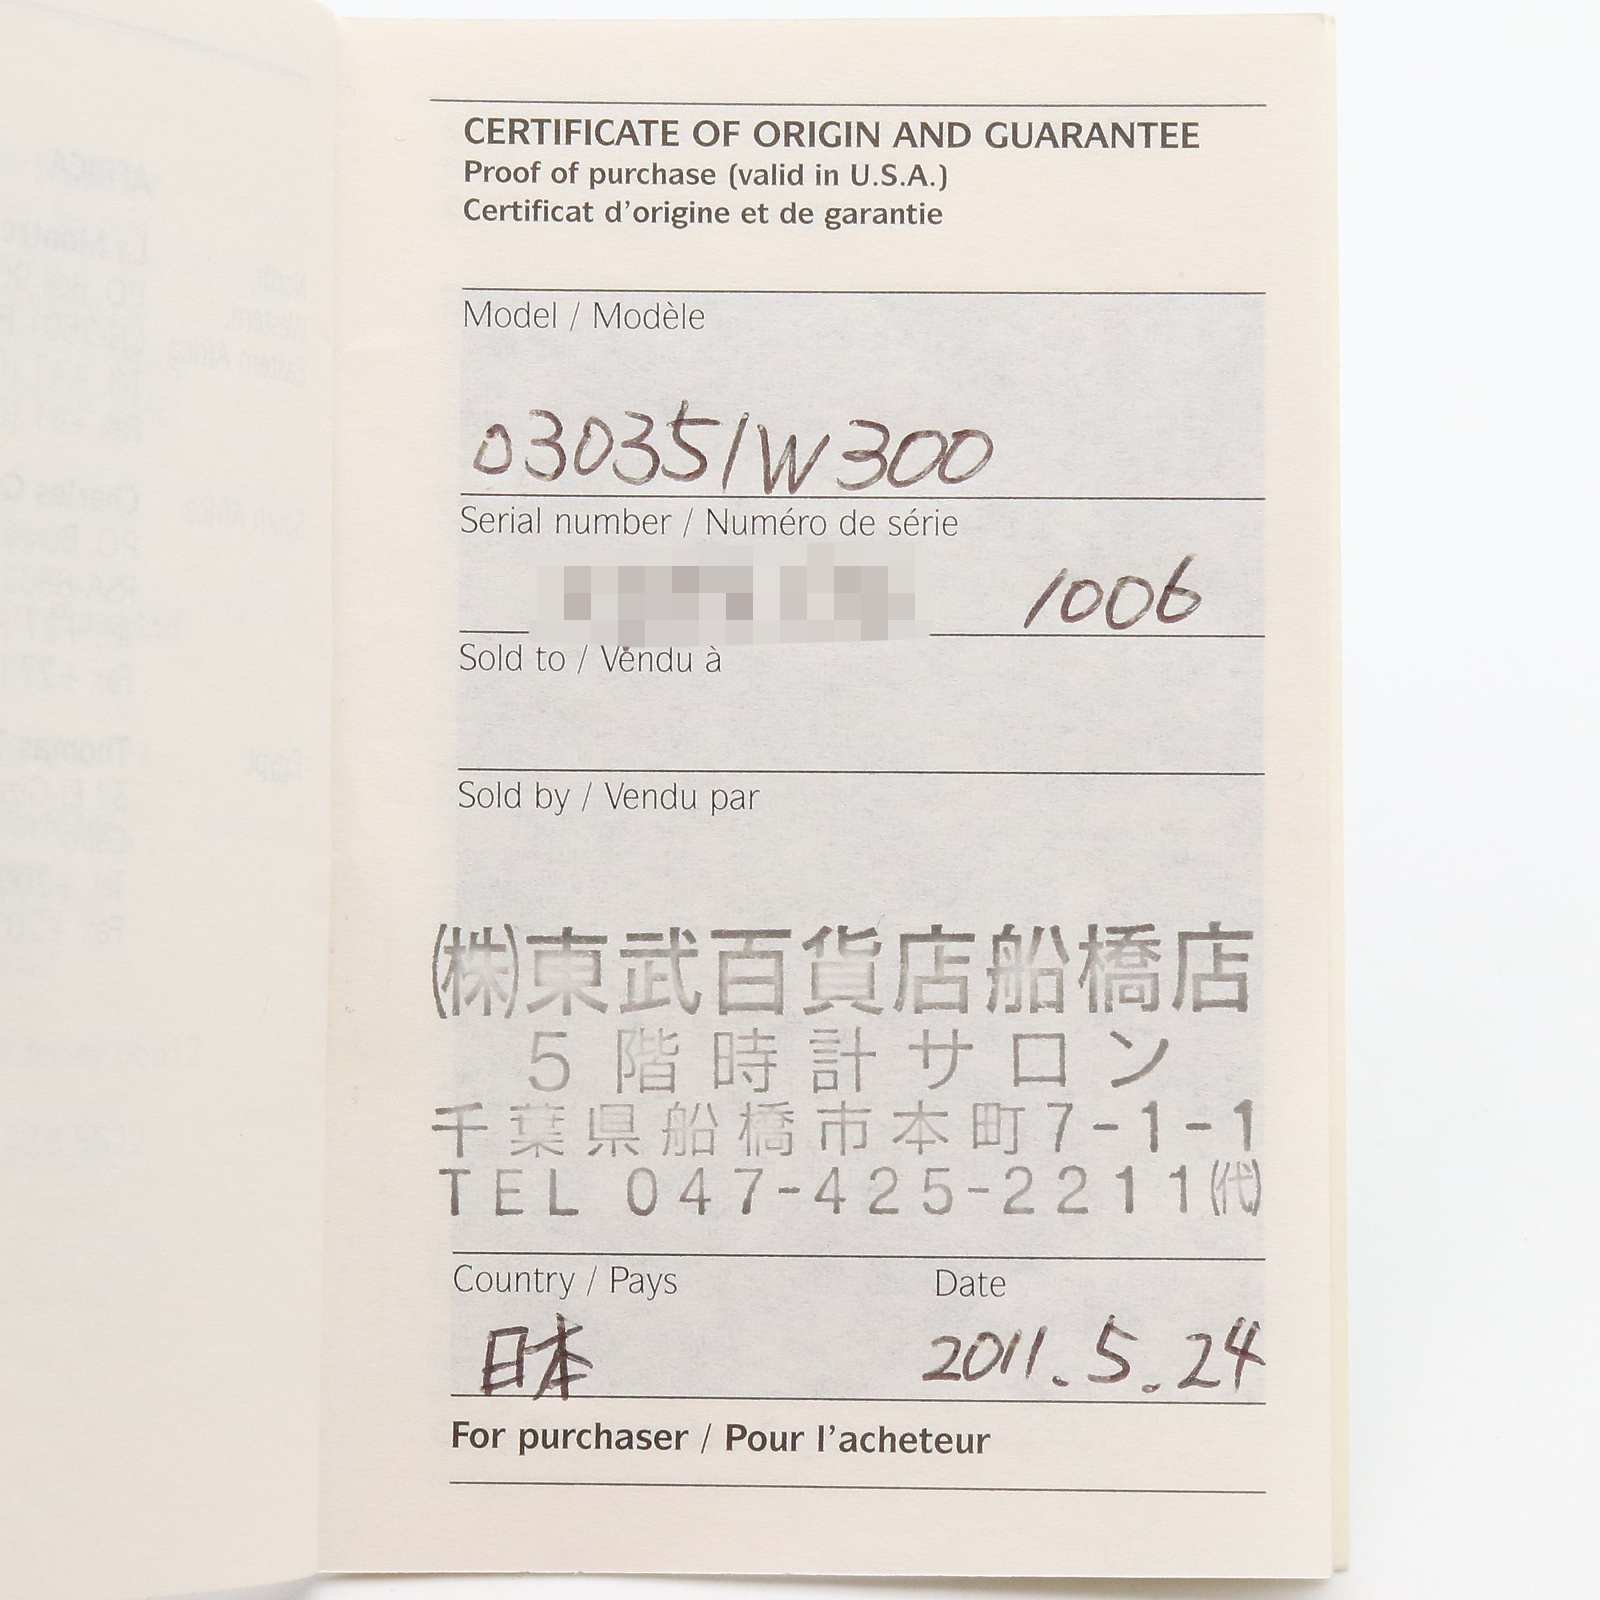 CERTIFICATE OF ORIGIN AND GUARANTEE
Proof of purchase (valid in U.S.A.)
Certificat d'origine et de garantie
Model / Modèle
030351W300
Serial number / Numéro de série
1006
Sold to / Vendu à
Sold by / Vendu par
㈱東武百貨店船橋店
5階時計サロン
千葉県船橋市本町7-1-1
TEL 047-425-2211㈹
Country / Pays Date
日本 2011.5.24
For purchaser / Pour l'acheteur